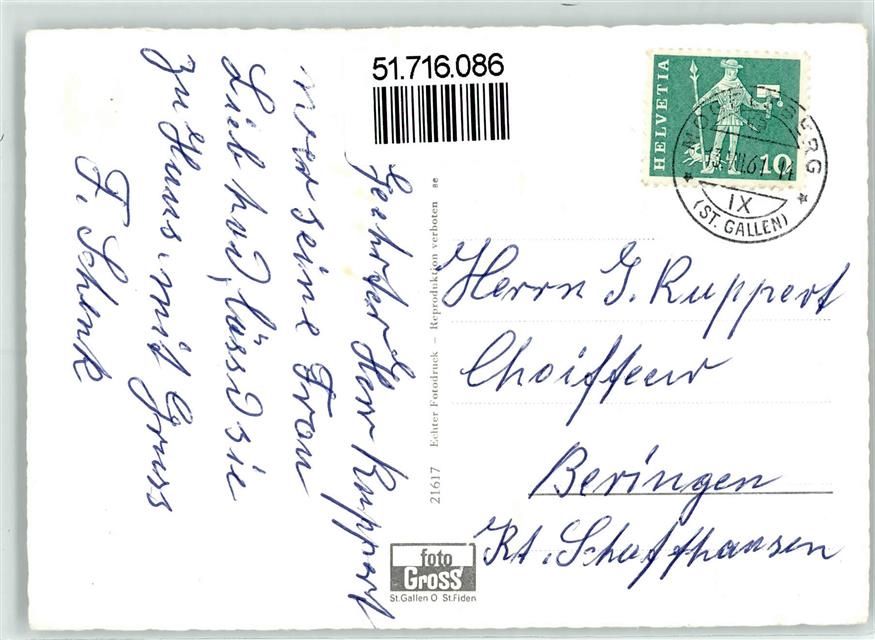 51.716.086
HELVETIA
10
MOGELSBERG
13.VII.61-14
IX
(ST. GALLEN)
Geehrter Herr Ruppert
wer seine Frau
Lieb had, lässd sie
zu Haus. mit Gruss
F. Schenk
21617 Echter Fotodruck – Reproduktion verboten
Herrn J. Ruppert
Choiffeur
Beringen
Kt. Schaffhausen
foto
Gross
St.Gallen O St.Fiden